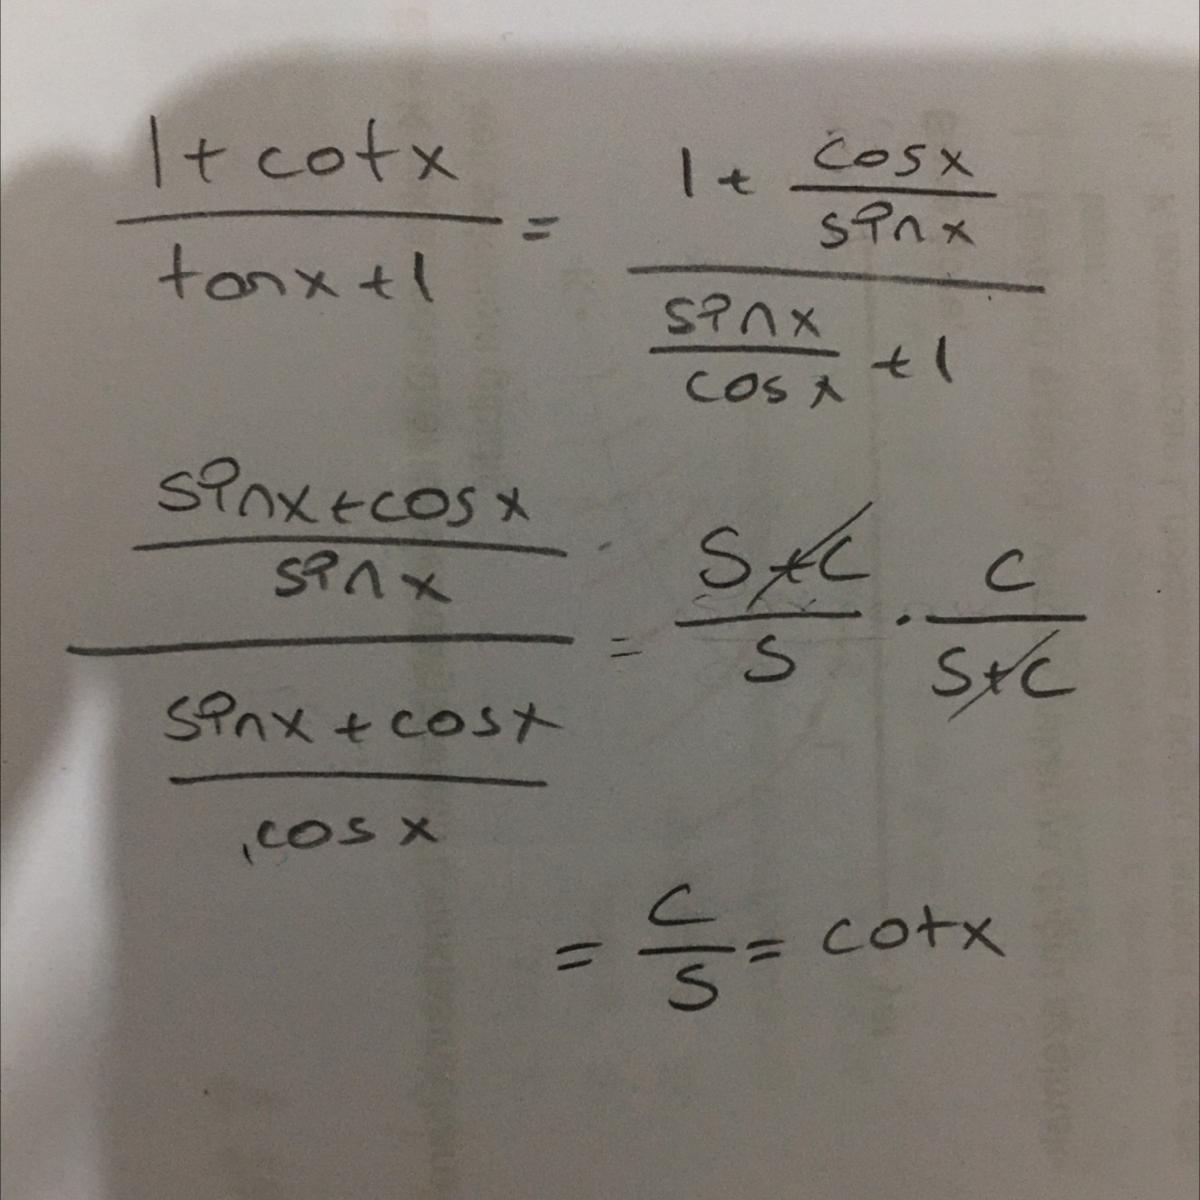 1 + cotx / tanx + 1 = 1 + cosx / sinx / sinx / cosx + 1
sinx + cosx / sinx / sinx + cosx / cosx = S + C / S . C / S + C
= C / S = cotx